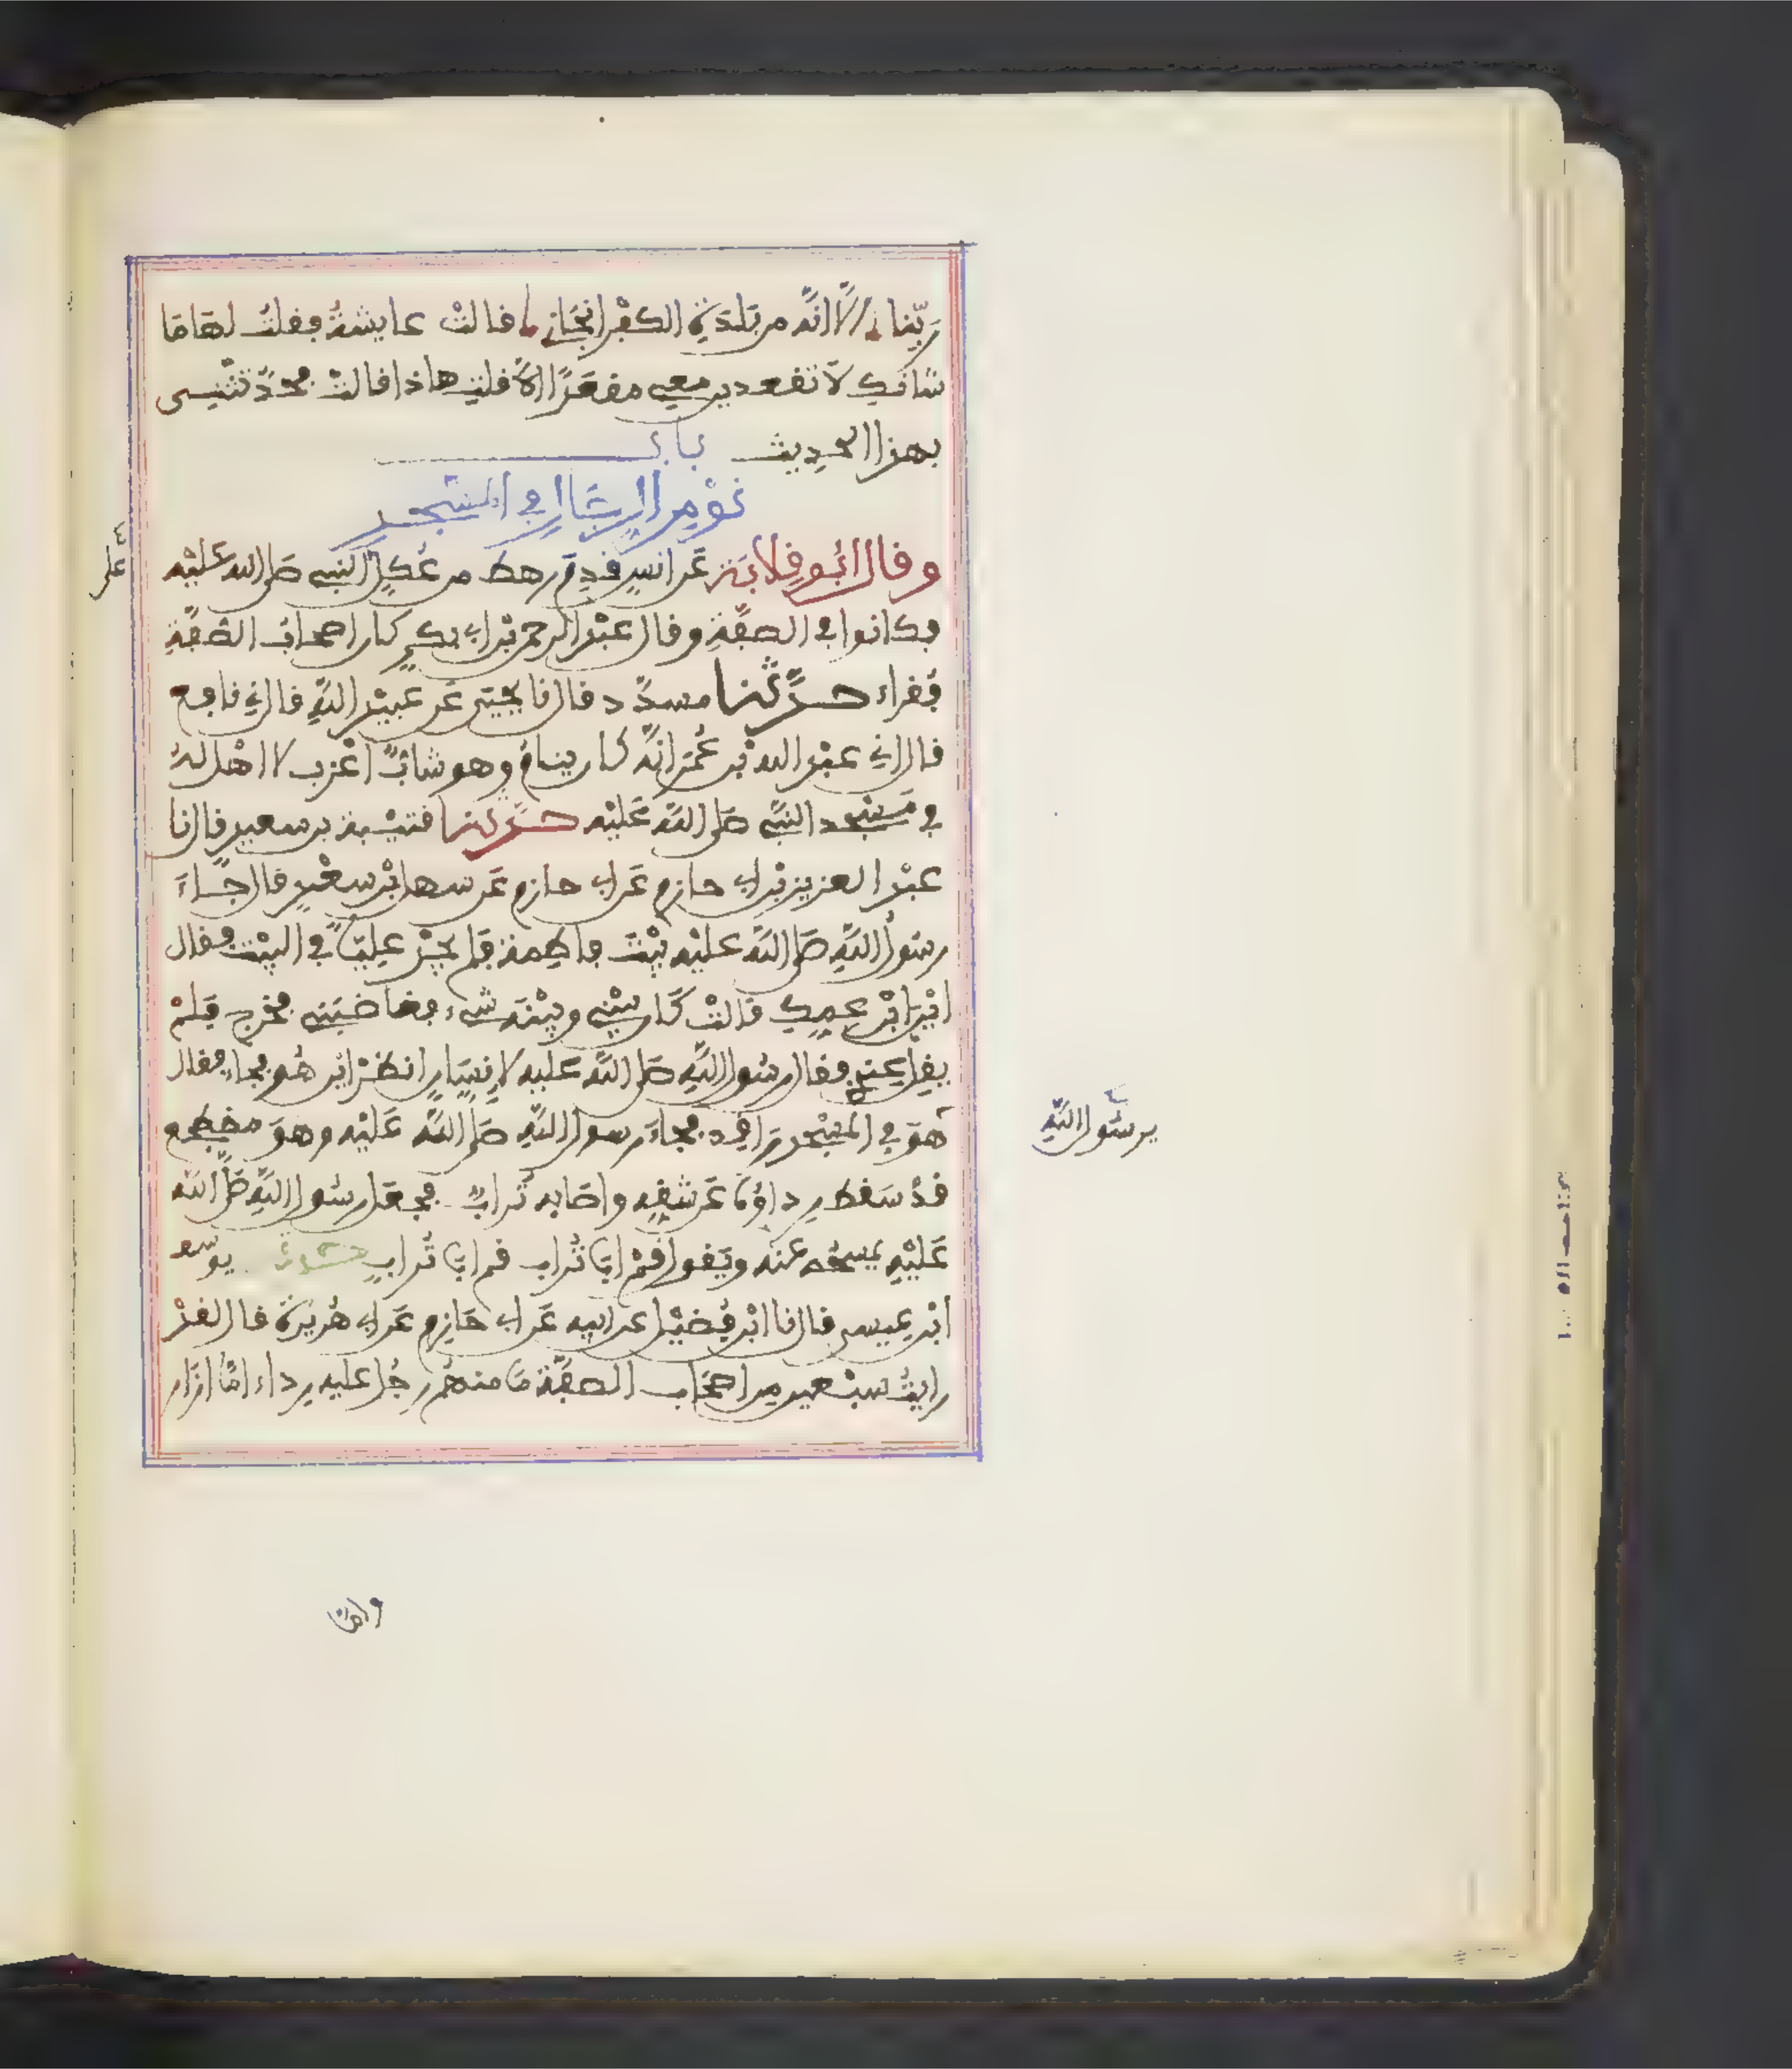 ربّنا ألا انّه من بلدة الكفر انجاني قالت عايشةُ فقلتُ لها ما
شانكِ لا تقعدين معي مقعدًا الا قلتِ هاذا قالت فحدّثتني
بهذا الحديث باب
نوْم الرجال في المسْجد
وقال ابُو قِلابَة عَن انسٍ قدِمَ رهط من عُكلٍ النبي صَلى الله عَليْه
فكانوا في الصفّةِ وقال عبْد الرحمن بْن ابي بكرٍ كان اصحابُ الصّفّةِ
فُقراء حدّثنا مسدّد قال نا يحْيَى عَن عبيْد اللهِ قال ني نافع
قال اني عبْد الله بْن عُمَر انّه كان ينامُ وهو شابٌّ اعْزب لا اهْل لهُ
في مَسْجد النبيّ صَلى اللهُ عَليْه حدّثنا قتيْبة بن سعيد قال نا
عبْد العزيز بْن ابي حازم عَن ابي حازم عَن سهل بْن سعْدٍ قال جاءَ
رسُول اللهِ صَلى اللهُ عليْه بيْتَ فاطمة فلم يجدْ عليًّا في البيْت فقال
ايْن ابْن عمِكِ قالتْ كَان بيْني وبيْنَه شيء فغاضبَني فخرج فلمْ
يقِل عِندِي فقال رسُول اللهِ صَلى اللهُ عليه لانسَانٍ انظرْ اين هُو فجاء فقال
هُوَ في المسْجد رَاقد فجاءَ رسول اللهِ صَلى اللهُ عَليْه وهوَ مضطجع
قدْ سَقط رداؤه عَن شقِهِ واصَابه تُرابٌ فجعَل رسُول اللهِ صَلى الله
عَليْهِ يمسحُه عنه ويَقول قمْ ابَا تُراب قم ابَا تُرابٍ حدثنا يوسف
ابْن عيسى قال نا ابْن فُضيْل عن ابيه عَن ابي حَازِم عَن ابي هُريْرة قال لقدْ
رايتُ سبْعين من اصحَاب الصفّة مَا منهُم رجُل عليه رداء امّا ازار
على
يرسُول اللهِ
وامّا